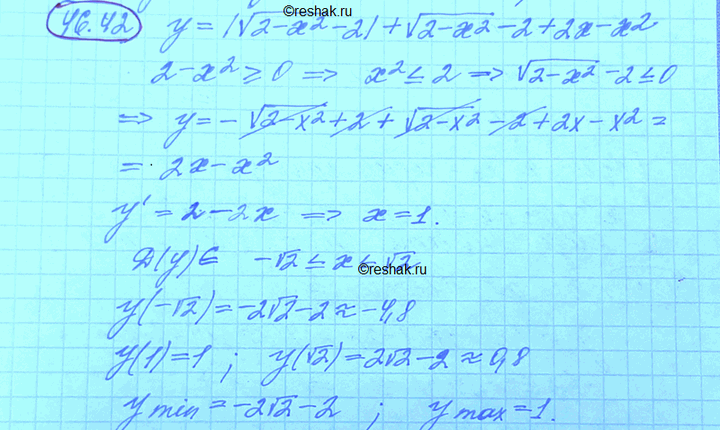 ©reshak.ru
46.42 y = |√2-x² -2| + √2-x² -2+2x-x²
2-x² ≥ 0 => x² ≤ 2 => √2-x² -2 ≤ 0
=> y = -√2-x² +2+ √2-x² -2+2x-x² =
= 2x-x²
y' = 2-2x => x=1.
D(y)∈ -√2 ≤ x ≤ √2
©reshak.ru
y(-√2) = -2√2-2 ≈ -4,8
y(1)=1 ; y(√2) = 2√2-2 ≈ 0,8
y min = -2√2-2 ; y max = 1.